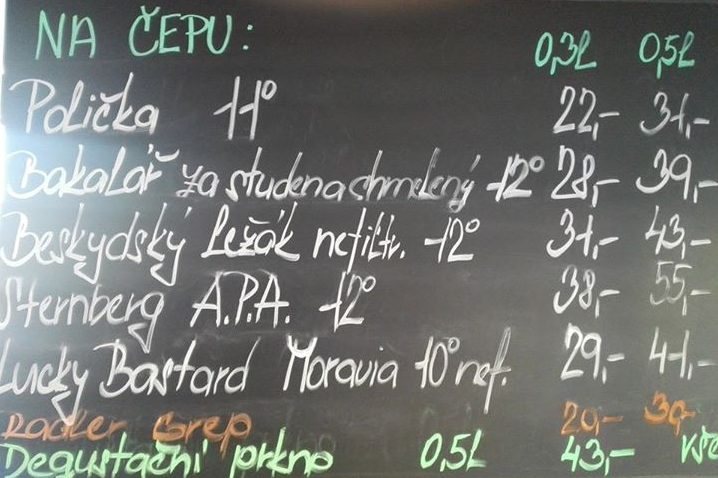 NA ČEPU: 0,3l 0,5l
Polička 11° 22,- 31,-
Bakalář za studena chmelený 12° 28,- 39,-
Beskydský Ležák nefiltr. 12° 31,- 43,-
Sternberg A.P.A. 12° 38,- 55,-
Lucky Bastard Moravia 10° nef. 29,- 41,-
Radler Grep 20,- 30,-
Degustační prkno 0,5l 43,-